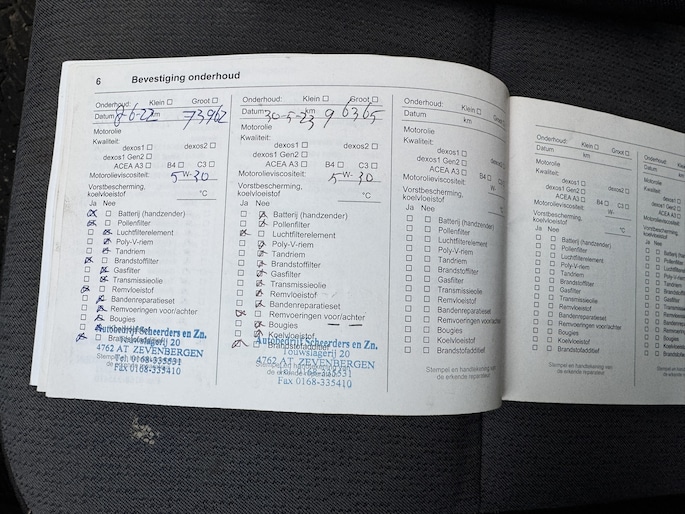 6 Bevestiging onderhoud
Onderhoud: Klein ☐ Groot ☐
Datum 8-6-22 km 73962
Motorolie
Kwaliteit:
dexos1 ☐ dexos2 ☐
dexos1 Gen2 ☐
ACEA A3 ☐ B4 ☐ C3 ☐
Motorolieviscositeit: 5 W- 30
Vorstbescherming,
koelvloeistof °C
Ja Nee
Batterij (handzender)
Pollenfilter
Luchtfilterelement
Poly-V-riem
Tandriem
Brandstoffilter
Gasfilter
Transmissieolie
Remvloeistof
Bandenreparatieset
Remvoeringen voor/achter
Bougies
Autobedrijf Scheerders en Zn.
Touwslagerij 20
4762 AT ZEVENBERGEN
Tel. 0168-335531
Fax 0168-335410
Onderhoud: Klein ☐ Groot ☐
Datum 30-5-23 km 96365
Motorolie
Kwaliteit:
dexos1 ☐ dexos2 ☐
dexos1 Gen2 ☐
ACEA A3 ☐ B4 ☐ C3 ☐
Motorolieviscositeit: 5 W- 30
Vorstbescherming,
koelvloeistof °C
Ja Nee
Batterij (handzender)
Pollenfilter
Luchtfilterelement
Poly-V-riem
Tandriem
Brandstoffilter
Gasfilter
Transmissieolie
Remvloeistof
Bandenreparatieset
Remvoeringen voor/achter
Bougies
Koelvloeistof
Brandstofadditief
Autobedrijf Scheerders en Zn.
Touwslagerij 20
4762 AT ZEVENBERGEN
Tel. 0168-335531
Fax 0168-335410
Onderhoud: Klein ☐ Groot ☐
Datum km
Motorolie
Kwaliteit:
dexos1 ☐ dexos2 ☐
dexos1 Gen2 ☐
ACEA A3 ☐ B4 ☐ C3 ☐
Motorolieviscositeit: W-
Vorstbescherming,
koelvloeistof °C
Ja Nee
Batterij (handzender)
Pollenfilter
Luchtfilterelement
Poly-V-riem
Tandriem
Brandstoffilter
Gasfilter
Transmissieolie
Remvloeistof
Bandenreparatieset
Remvoeringen voor/achter
Bougies
Koelvloeistof
Brandstofadditief
Stempel en handtekening van
de erkende reparateur
Onderhoud: Klein ☐ Groot ☐
Datum km
Motorolie
Kwaliteit:
dexos1 ☐ dexos2 ☐
dexos1 Gen2 ☐
ACEA A3 ☐ B4 ☐ C3 ☐
Motorolieviscositeit: W-
Vorstbescherming,
koelvloeistof °C
Ja Nee
Batterij (handzender)
Pollenfilter
Luchtfilterelement
Poly-V-riem
Tandriem
Brandstoffilter
Gasfilter
Transmissieolie
Remvloeistof
Bandenreparatieset
Remvoeringen voor/achter
Bougies
Koelvloeistof
Brandstofadditief
Stempel en handtekening van
de erkende reparateur